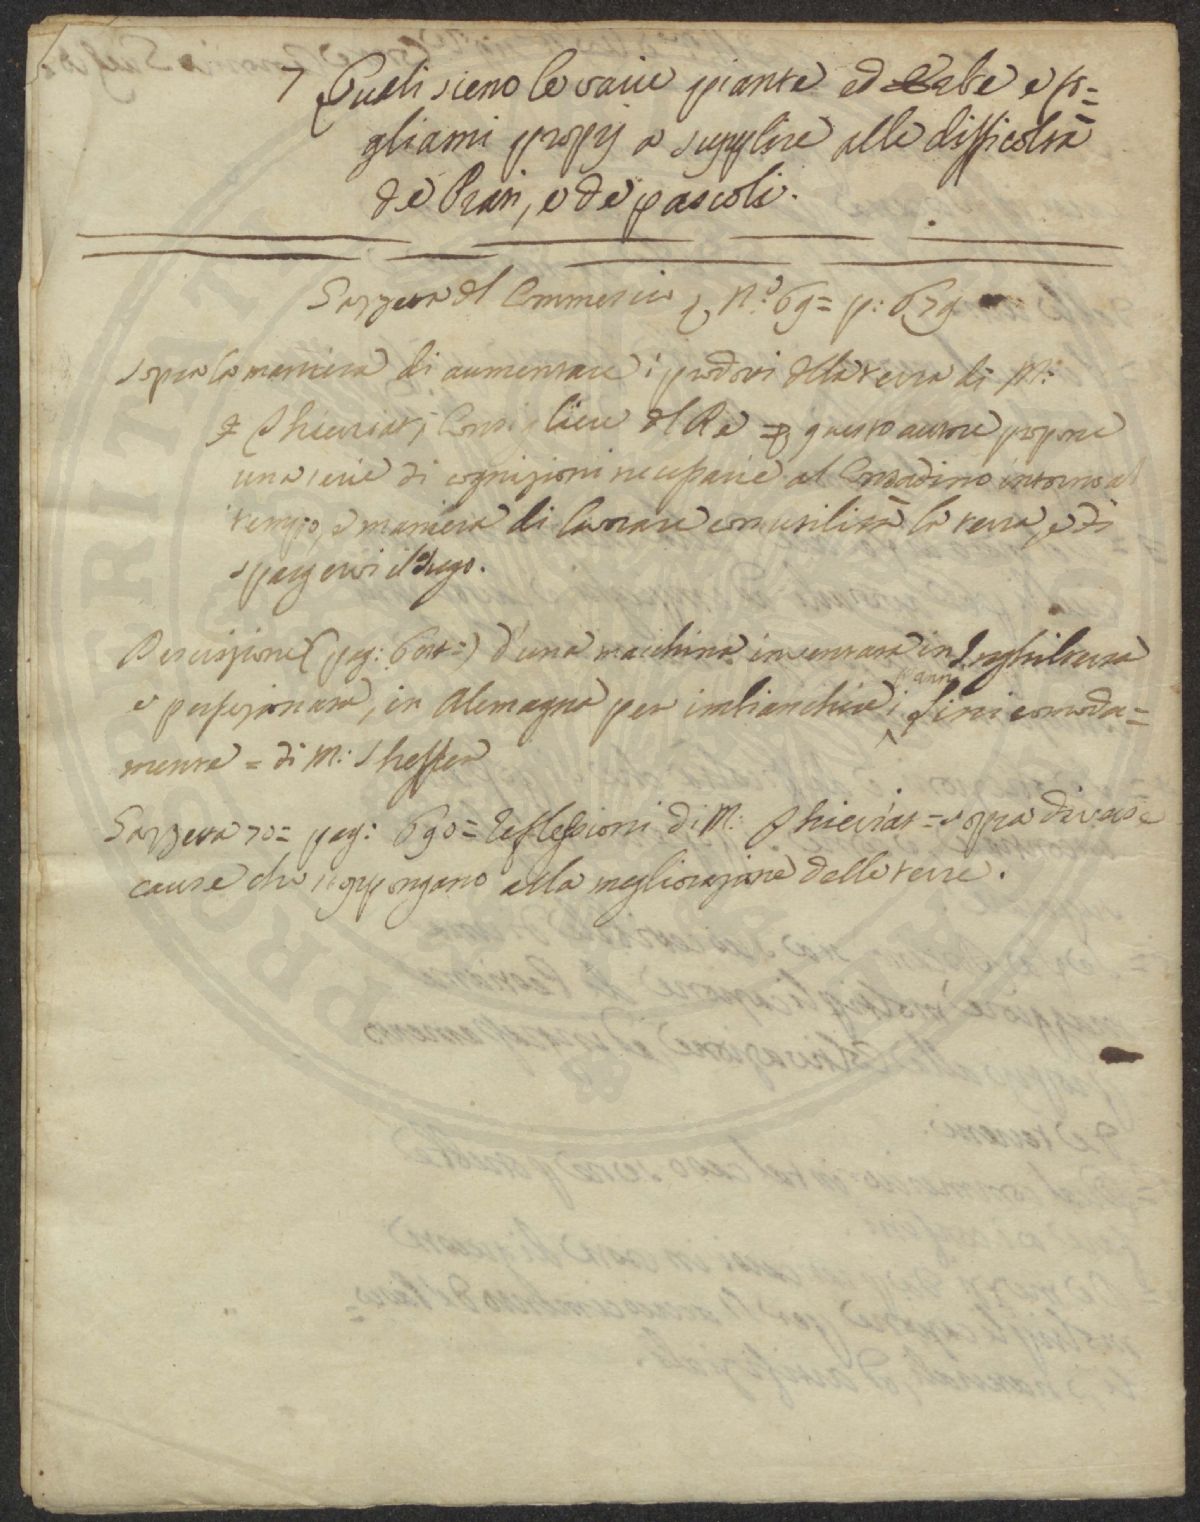 7 Quali sieno le varie piante ed Erbe e fo=
gliami proprj a supplire alle difficoltà
de Prati, e de pascoli.
Gazzetta del Commercio N.º 69= p: 679
sopra la maniera di aumentare i prodotti della terra di M:
Thieriat, Consigliere del Re questo autore propone
una serie di cognizioni necessarie al Contadino intorno al
tempo, e maniera di lavorare con utilità la terra, e di
spargervi il sugo.
Descrizione (pag: ) d'una macchina inventata in Inghilterra
e perfezionata, in Alemagna per imbianchire i panni
lini comoda=
mente = di M: Sheffer
Gazzetta 70= pag: 690= Reflessioni di M: Thieriat = sopra diverse
cause che si oppongano alla megliorazione delle terre.